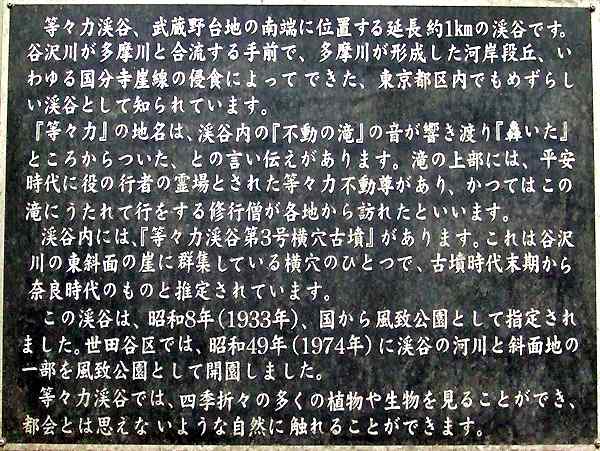 等々力渓谷、武蔵野台地の南端に位置する延長約1kmの渓谷です。
谷沢川が多摩川と合流する手前で、多摩川が形成した河岸段丘、い
わゆる国分寺崖線の侵食によってできた、東京都区内でもめずらし
い渓谷として知られています。
『等々力』の地名は、渓谷内の『不動の滝』の音が響き渡り『轟いた』
ところからついた、との言い伝えがあります。滝の上部には、平安
時代に役の行者の霊場とされた等々力不動尊があり、かつてはこの
滝にうたれて行をする修行僧が各地から訪れたといいます。
渓谷内には、『等々力渓谷第3号横穴古墳』があります。これは谷沢
川の東斜面の崖に群集している横穴のひとつで、古墳時代末期から
奈良時代のものと推定されています。
この渓谷は、昭和8年(1933年)、国から風致公園として指定され
ました。世田谷区では、昭和49年(1974年)に渓谷の河川と斜面地の
一部を風致公園として開園しました。
等々力渓谷では、四季折々の多くの植物や生物を見ることができ、
都会とは思えないような自然に触れることができます。